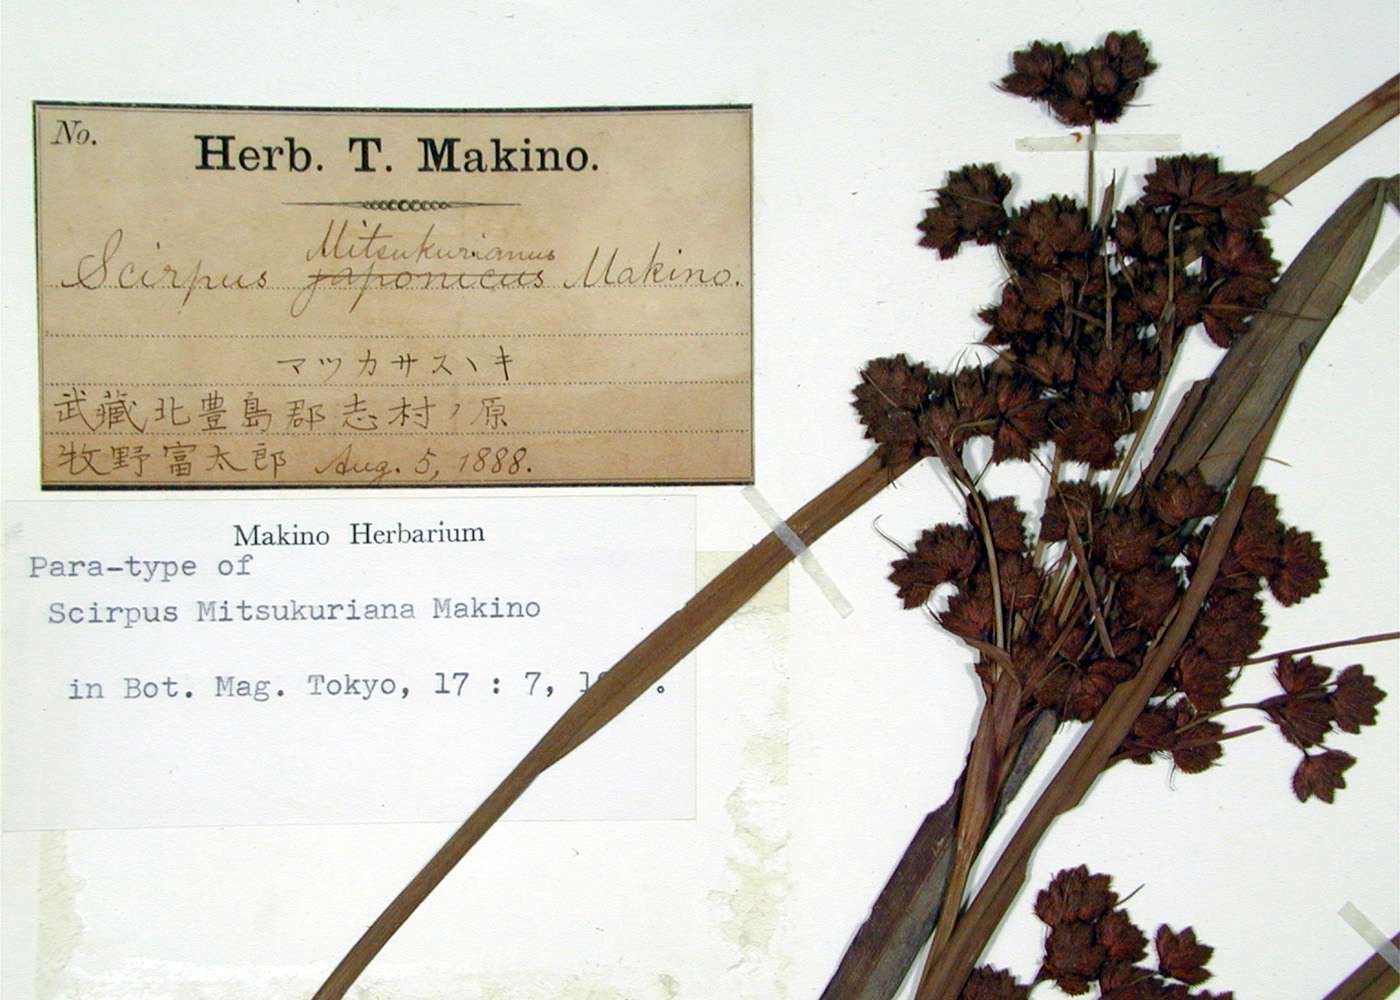 No.
Herb. T. Makino.
Mitsukurianus
Scirpus japonicus Makino.
マツカサスヽキ
武藏北豊島郡志村ノ原
牧野富太郎 Aug. 5, 1888.
Makino Herbarium
Para-type of
Scirpus Mitsukuriana Makino
in Bot. Mag. Tokyo, 17 : 7,